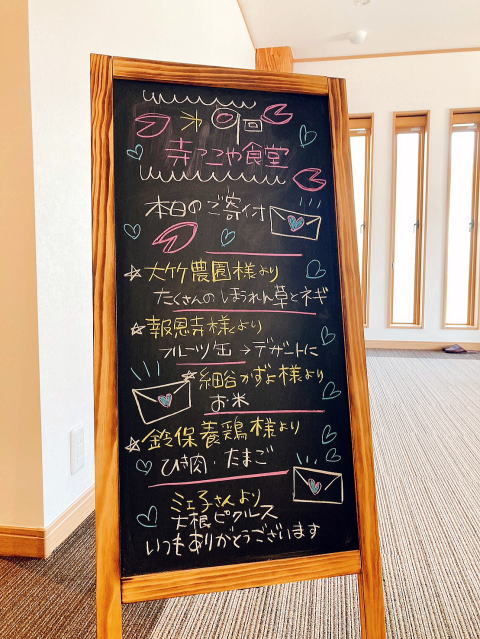 才9回
寺っこや食堂
本日のご寄付
☆大竹農園様より
たくさんのほうれん草とネギ
☆報恩寺様より
フルーツ缶→デザートに
☆細谷かずよ様より
お米
☆鈴保養鶏様より
ひき肉・たまご
ミエ子さんより
大根ピクルス
いつもありがとうございます